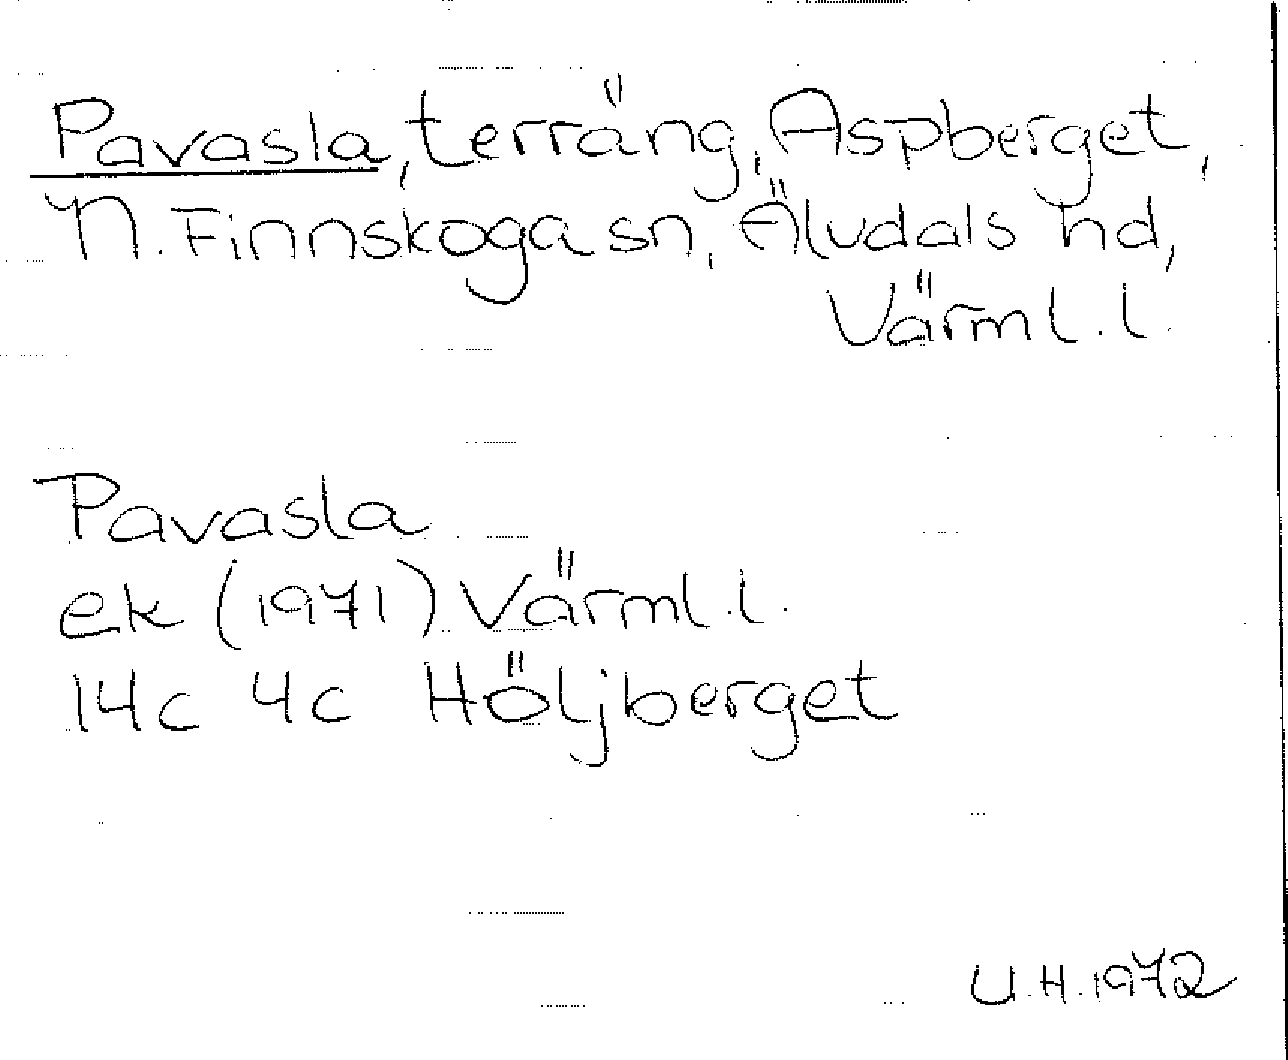 Pavasla, terräng, Aspberget,
N. Finnskoga sn, Älvdals hd,
Värml. l.
Pavasla
ek (1971) Värml. l.
14c 4c Höljberget
U.H. 1972